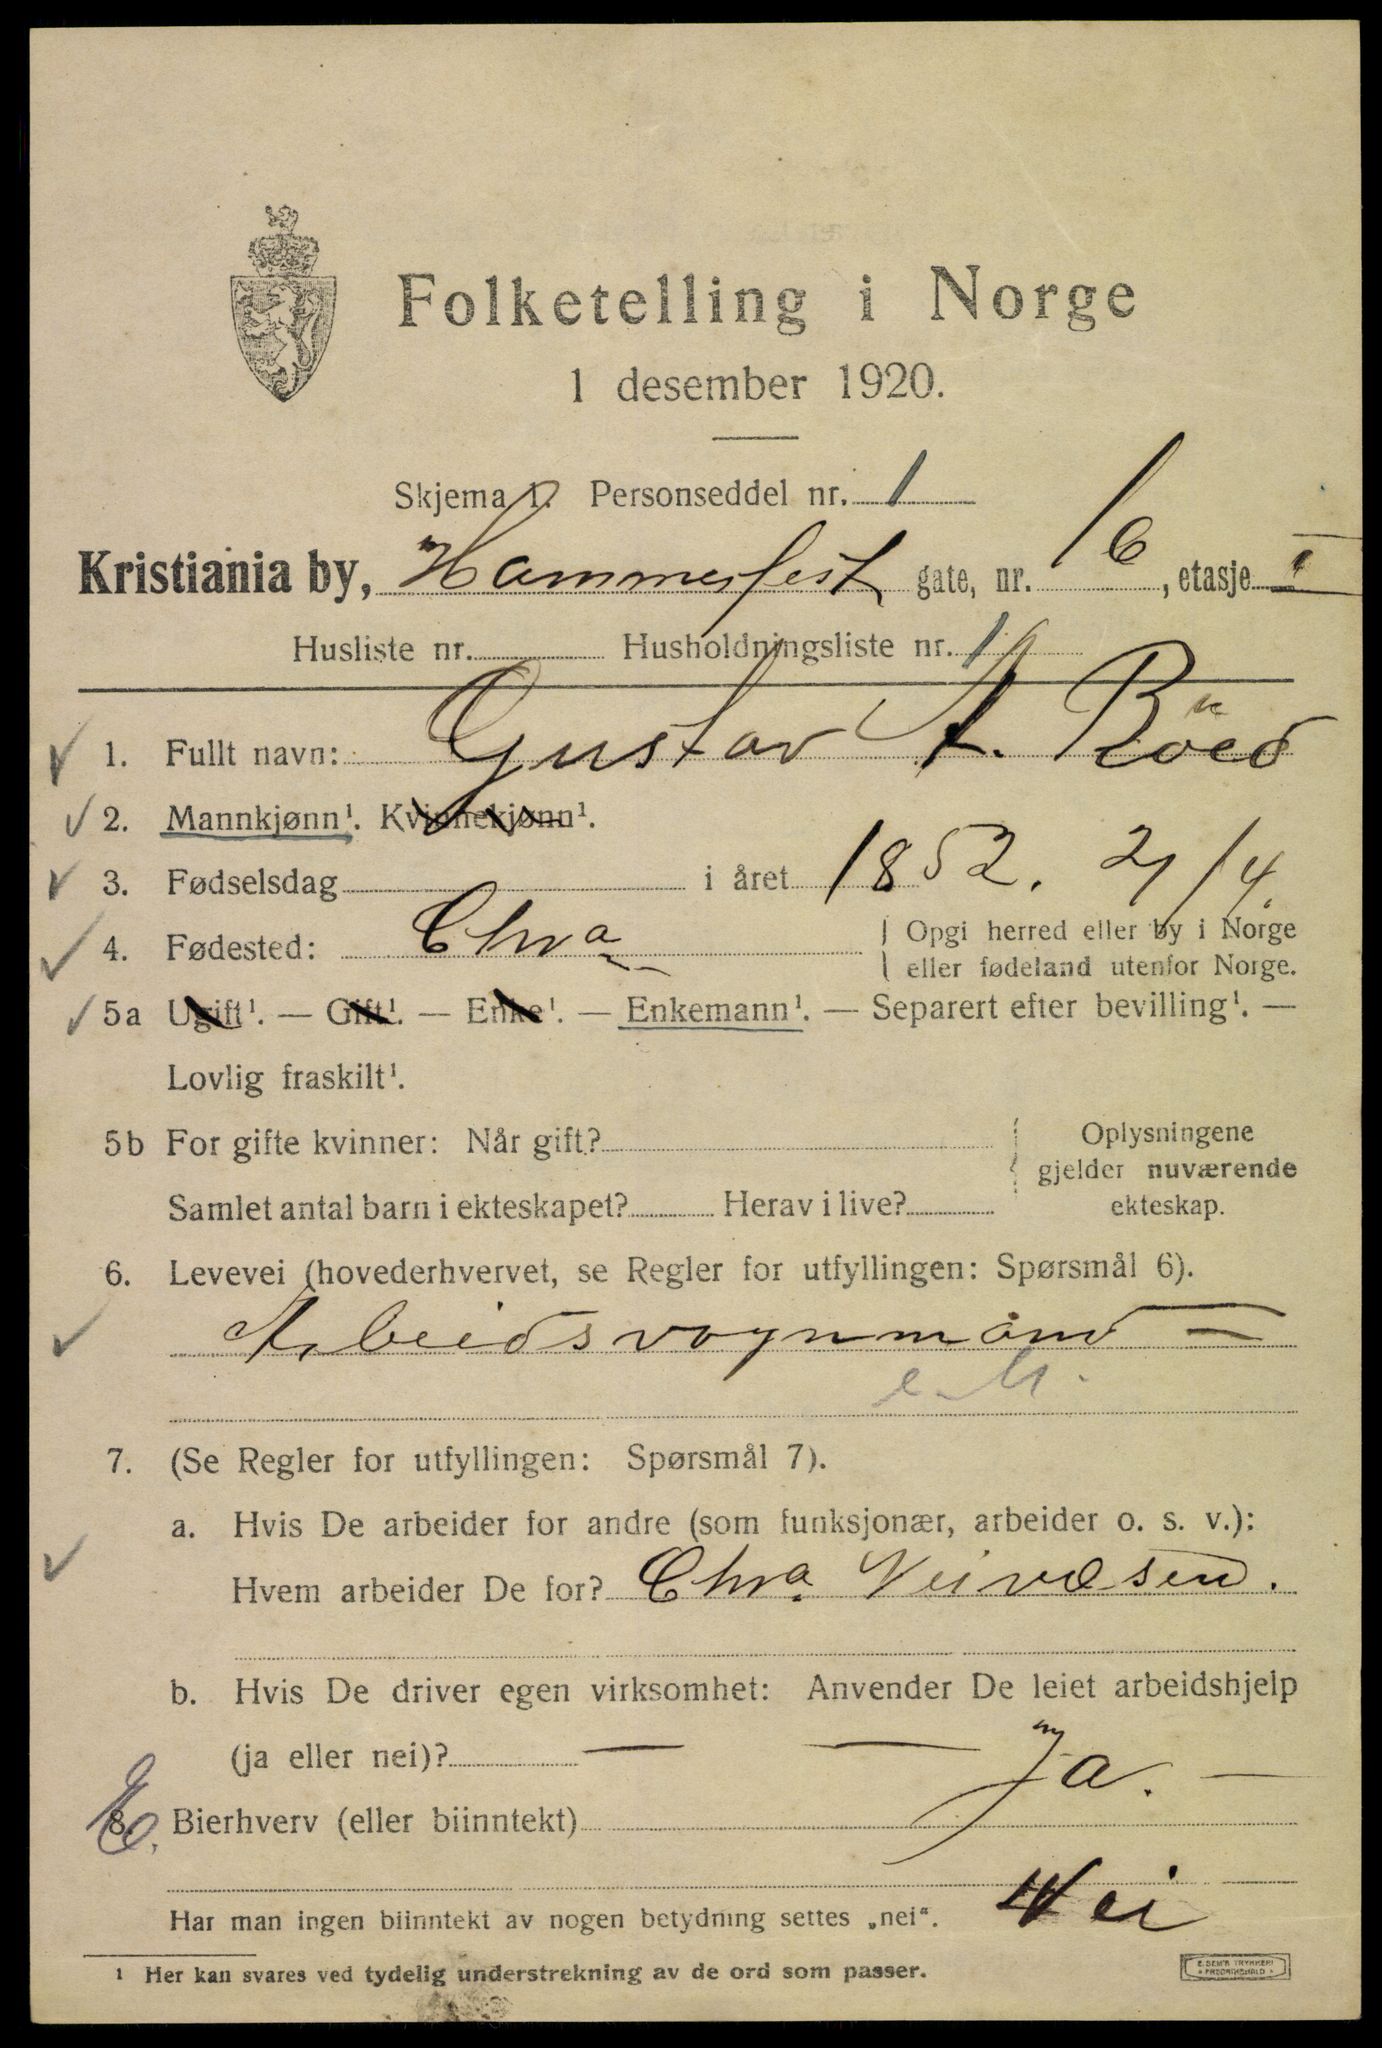 Folketelling i Norge
1 desember 1920.
Skjema 1. Personseddel nr. 1
Kristiania by, Hammerfest gate, nr. 6, etasje I
Husliste nr. Husholdningsliste nr. 1
1. Fullt navn: Gustav A. Röed
2. Mannkjønn¹. Kvinnekjønn¹.
3. Fødselsdag i året 1852. 21/4.
4. Fødested: Chra Opgi herred eller by i Norge
eller fødeland utenfor Norge.
5a Ugift¹. — Gift¹. — Enke¹. — Enkemann¹. — Separert efter bevilling¹. —
Lovlig fraskilt¹.
5b For gifte kvinner: Når gift? Oplysningene
gjelder nuværende
Samlet antal barn i ekteskapet? Herav i live? ekteskap.
6. Levevei (hovederhvervet, se Regler for utfyllingen: Spørsmål 6).
Arbeidsvognmand —
7. (Se Regler for utfyllingen: Spørsmål 7).
a. Hvis De arbeider for andre (som funksjonær, arbeider o. s. v.):
Hvem arbeider De for? Chra Veivæsen.
b. Hvis De driver egen virksomhet: Anvender De leiet arbeidshjelp
(ja eller nei)? — — Ja. —
8. Bierhverv (eller biinntekt)
Har man ingen biinntekt av nogen betydning settes „nei“. Nei
¹ Her kan svares ved tydelig understrekning av de ord som passer.
E. SEM'S TRYKKERI
FREDRIKSHALD